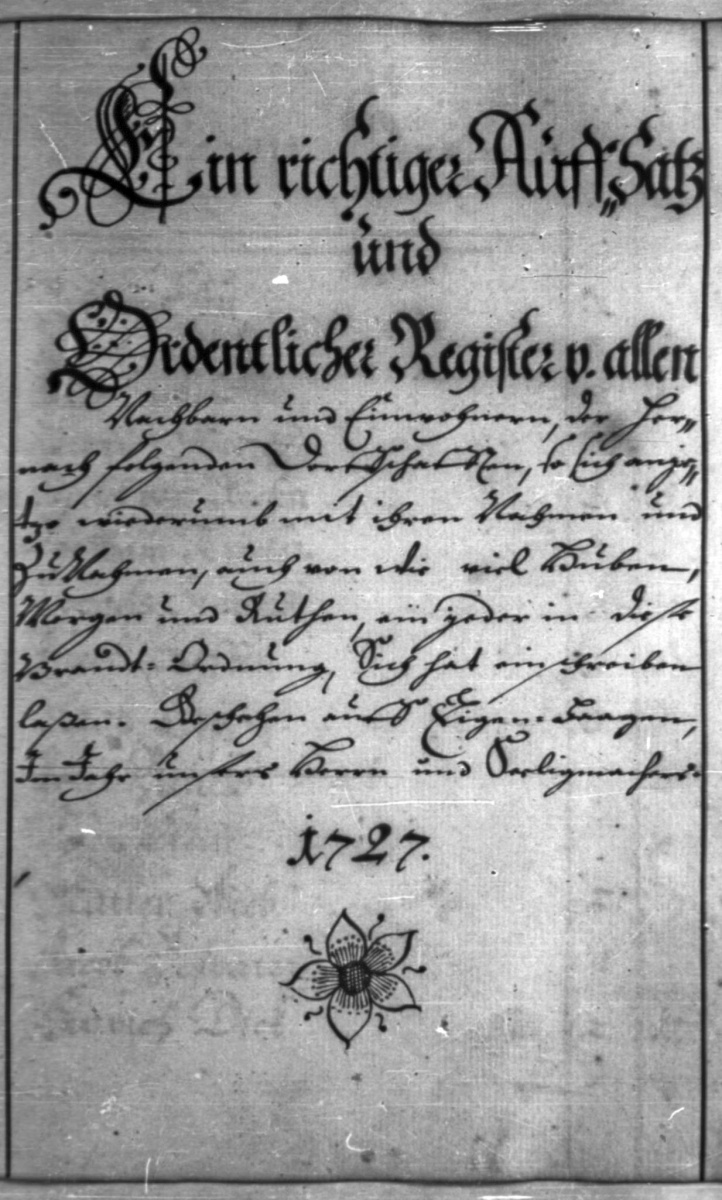 Ein richtiger Auff„Satz
und
Ordentlicher Register v. allen
Nachbarn und Einwohnern, der her„
nach folgenden Dorffschafften, so sich anje„
tzo wiederumb mit ihren Nahmen und
ZuNahmen, auch von wie viel Huben,
Morgen und Ruthen, ein jeder in diese
Brandt-Ordnung, Sich hat einschreiben
laßen. Geschehen auff Eigen-
Im Jahr unsers Herrn und Seeligmachers.
1727.